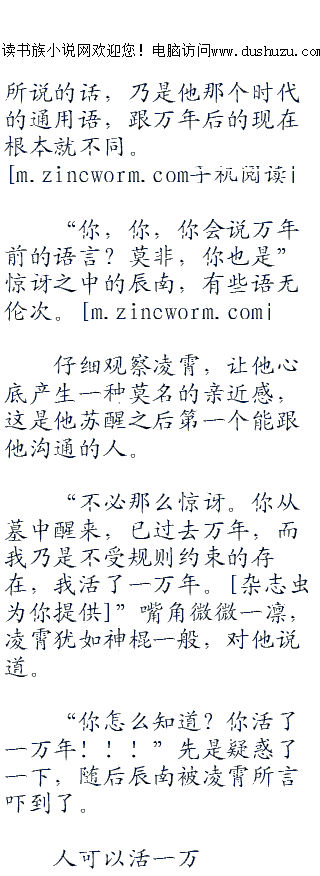 读书族小说网欢迎您！电脑访问www.dushuzu.com
所说的话，乃是他那个时代
的通用语，跟万年后的现在
根本就不同。
[m.zincworm.com手机阅读i
“你，你，你会说万年
前的语言？莫非，你也是”
惊讶之中的辰南，有些语无
伦次。[m.zincworm.comi
仔细观察凌霄，让他心
底产生一种莫名的亲近感，
这是他苏醒之后第一个能跟
他沟通的人。
“不必那么惊讶。你从
墓中醒来，已过去万年，而
我乃是不受规则约束的存
在，我活了一万年。[杂志虫
为你提供]”嘴角微微一凛，
凌霄犹如神棍一般，对他说
道。
“你怎么知道？你活了
一万年！！！”先是疑惑了
一下，随后辰南被凌霄所言
吓到了。
人可以活一万